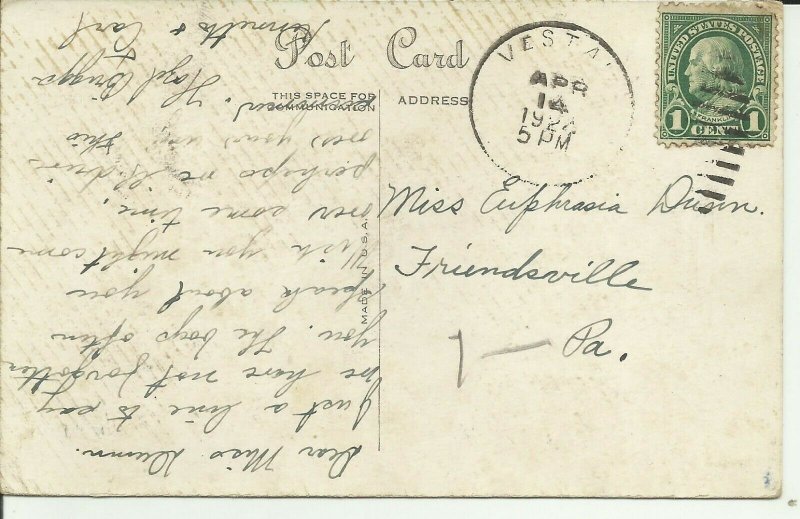 Post Card
THIS SPACE FOR
COMMUNICATION
ADDRESS
VESTAL
APR
14
192
5 PM
UNITED STATES POSTAGE
FRANKLIN
1 CENT 1
MADE IN U.S.A.
Miss Euphrasia Dunn.
Friendsville
Pa.
Dear Miss Dunn.
Just a line to say
we have not forgotten
you. The boys often
speak about you
Wish you might come
over some time.
perhaps we'll drive
over your way this
summer. Hazel Briggs
Kenneth & Carl